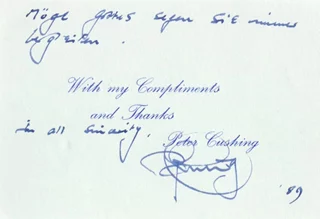 Möge Gottes Segen Sie immer
begleiten.
With my Compliments
and Thanks
in all sincerity,
Peter Cushing
'89